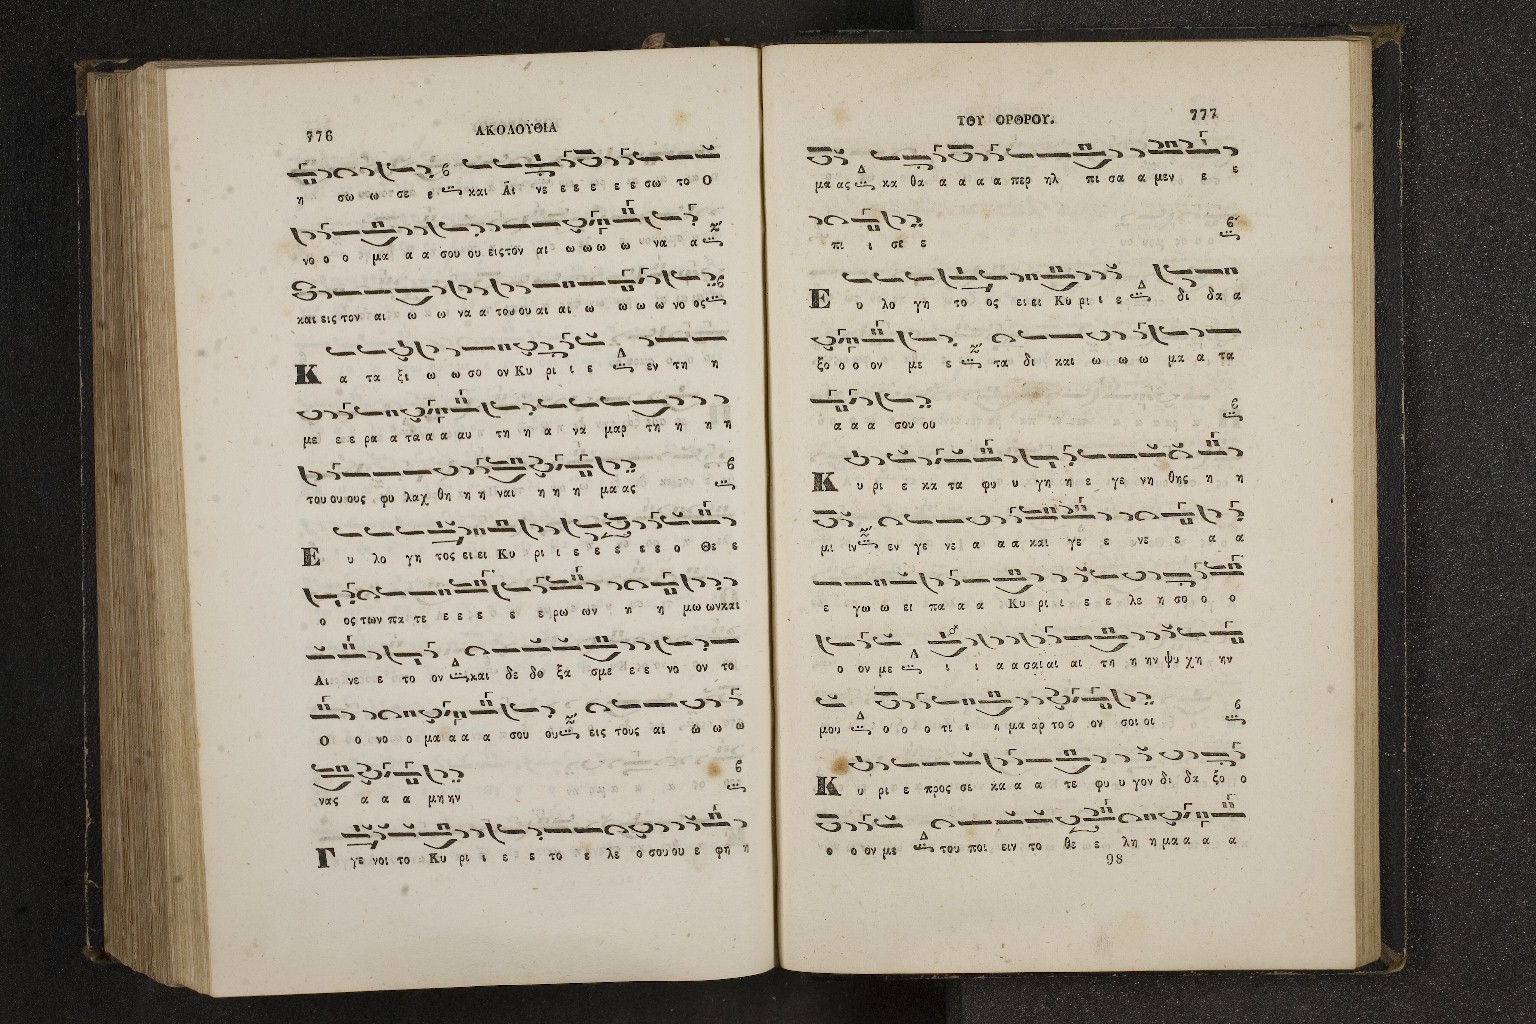 776
ΑΚΟΛΟΥΘΙΑ
η σω ω σε ε και Αι νε ε ε ε ε ε σω το Ο
νο ο ο μα α α σου ου εις τον αι ω ω ω ω να α
και εις τον αι ω ω να α του ου αι αι ω ω ω ω νο ος
Κ α τα ξι ω ω σο ον Κυ ρι ι ε εν τη η
με ε ε ρα α τα α α αυ τη η α να μαρ τη η η η
του ου ους φυ λαχ θη η η ναι η η η μα ας
Ε υ λο γη τος ει ει Κυ ρι ι ε ε ε ε ε ο Θε ε
ο ος των πα τε ε ε ε ε ε ρω ων η η μω ων και
Αι νε ε το ον και δε δο ξα σμε ε ε νο ον το
Ο ο νο ο μα α α α σου ου εις τους αι ω ω ω
νας α α α μη ην
Γ γε νοι το Κυ ρι ι ε ε το ε λε ο σου ου ε φη η
ΤΟΥ ΟΡΘΡΟΥ.
777
μα ας κα θα α α α α περ ηλ πι σα α μεν ε ε
πι ι σε ε
Ε υ λο γη το ος ει ει Κυ ρι ι ε δι δα α
ξο ο ο ον με ε τα δι και ω ω ω μα α τα
α α α σου ου
Κ υ ρι ε κα τα φυ υ γη η ε γε νη θης η η
μι ιν εν γε νε α α α και γε ε νε ε α α
ε γω ω ει πα α α Κυ ρι ι ε ε λε η σο ο ο
ο ον με ι ι α α σαι αι αι τη η ην ψυ χη ην
μου ο ο ο τι ι η μα αρ το ο ον σοι οι
Κ υ ρι ε προς σε κα α α τε φυ υ γον δι δα ξο ο
ο ο ον με του ποι ειν το θε ε λη η μα α α α
98